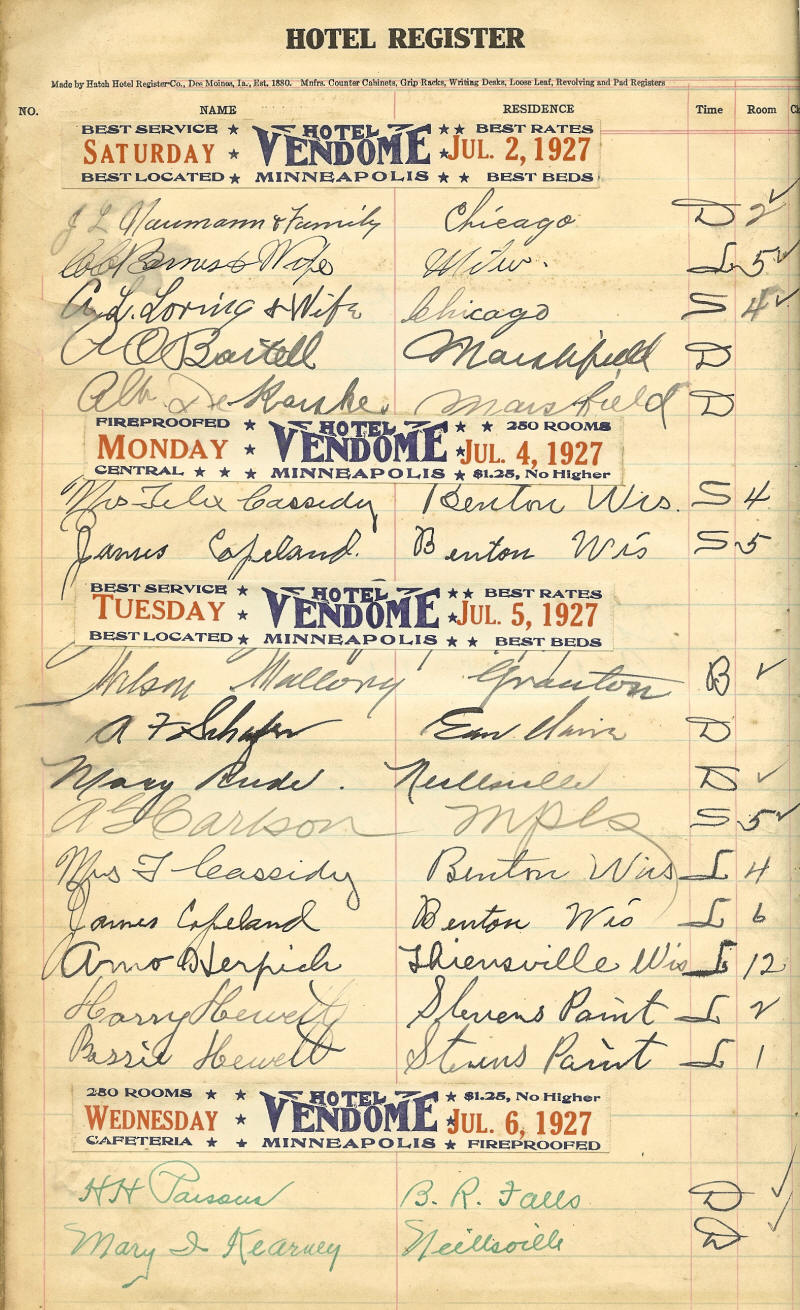 HOTEL REGISTER
Made by Hatch Hotel Register Co., Des Moines, Ia., Est. 1880. Mnfrs. Counter Cabinets, Grip Racks, Writing Desks, Loose Leaf, Revolving and Pad Registers
NO. NAME RESIDENCE Time Room
BEST SERVICE ★ HOTEL ★★ BEST RATES
SATURDAY ★ VENDOME ★ JUL. 2, 1927
BEST LOCATED ★ MINNEAPOLIS ★ ★ BEST BEDS
J L Naumann & Family Chicago D 2 ✓
Barnes & Wife Milw. L 5 ✓
A. L. Loring & Wife Chicago S 4 ✓
A O Bartell Marshfield D
Alb. De Marsfield D
FIREPROOFED HOTEL ★ ★ 250 ROOMS
MONDAY ★ VENDOME ★ JUL. 4, 1927
CENTRAL ★ ★ ★ MINNEAPOLIS ★ $1.25, No Higher
Mrs Felix Cassidy Benton Wis. S 4
James Copeland. Benton Wis S 5
BEST SERVICE ★ HOTEL ★★ BEST RATES
TUESDAY ★ VENDOME ★ JUL. 5, 1927
BEST LOCATED ★ MINNEAPOLIS ★ ★ BEST BEDS
Nelson Mallory Granton B ✓
A F Schafer Eau Claire D
Mary Rude. Neillsville D ✓
A G Carlson Mpls S 5 ✓
Mrs F Cassidy Benton Wis L 4
James Copeland Benton Wis L 6
Arno Herpich Thiensville Wis L 12
Harry Hewett Stevens Point L 2
Bessie Hewett Stevens Point L 1
250 ROOMS ★ ★ HOTEL ★ $1.25, No Higher
WEDNESDAY ★ VENDOME ★ JUL. 6, 1927
CAFETERIA ★ ★ MINNEAPOLIS ★ FIREPROOFED
H H Parsons B. R. Falls D ✓
Mary I Kearney Neillsville D ✓